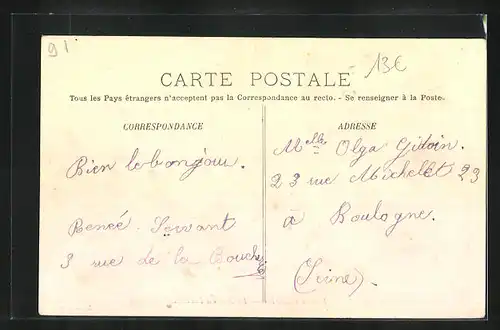 91
13€
CARTE POSTALE
Tous les Pays étrangers n'acceptent pas la Correspondance au recto. - Se renseigner à la Poste.
CORRESPONDANCE
Bien le bonjour.
Renée Servant
3 rue de la Bouch
ADRESSE
Melle Olga Gidoin.
23 rue Michelet 23
à Boulogne.
(Seine).